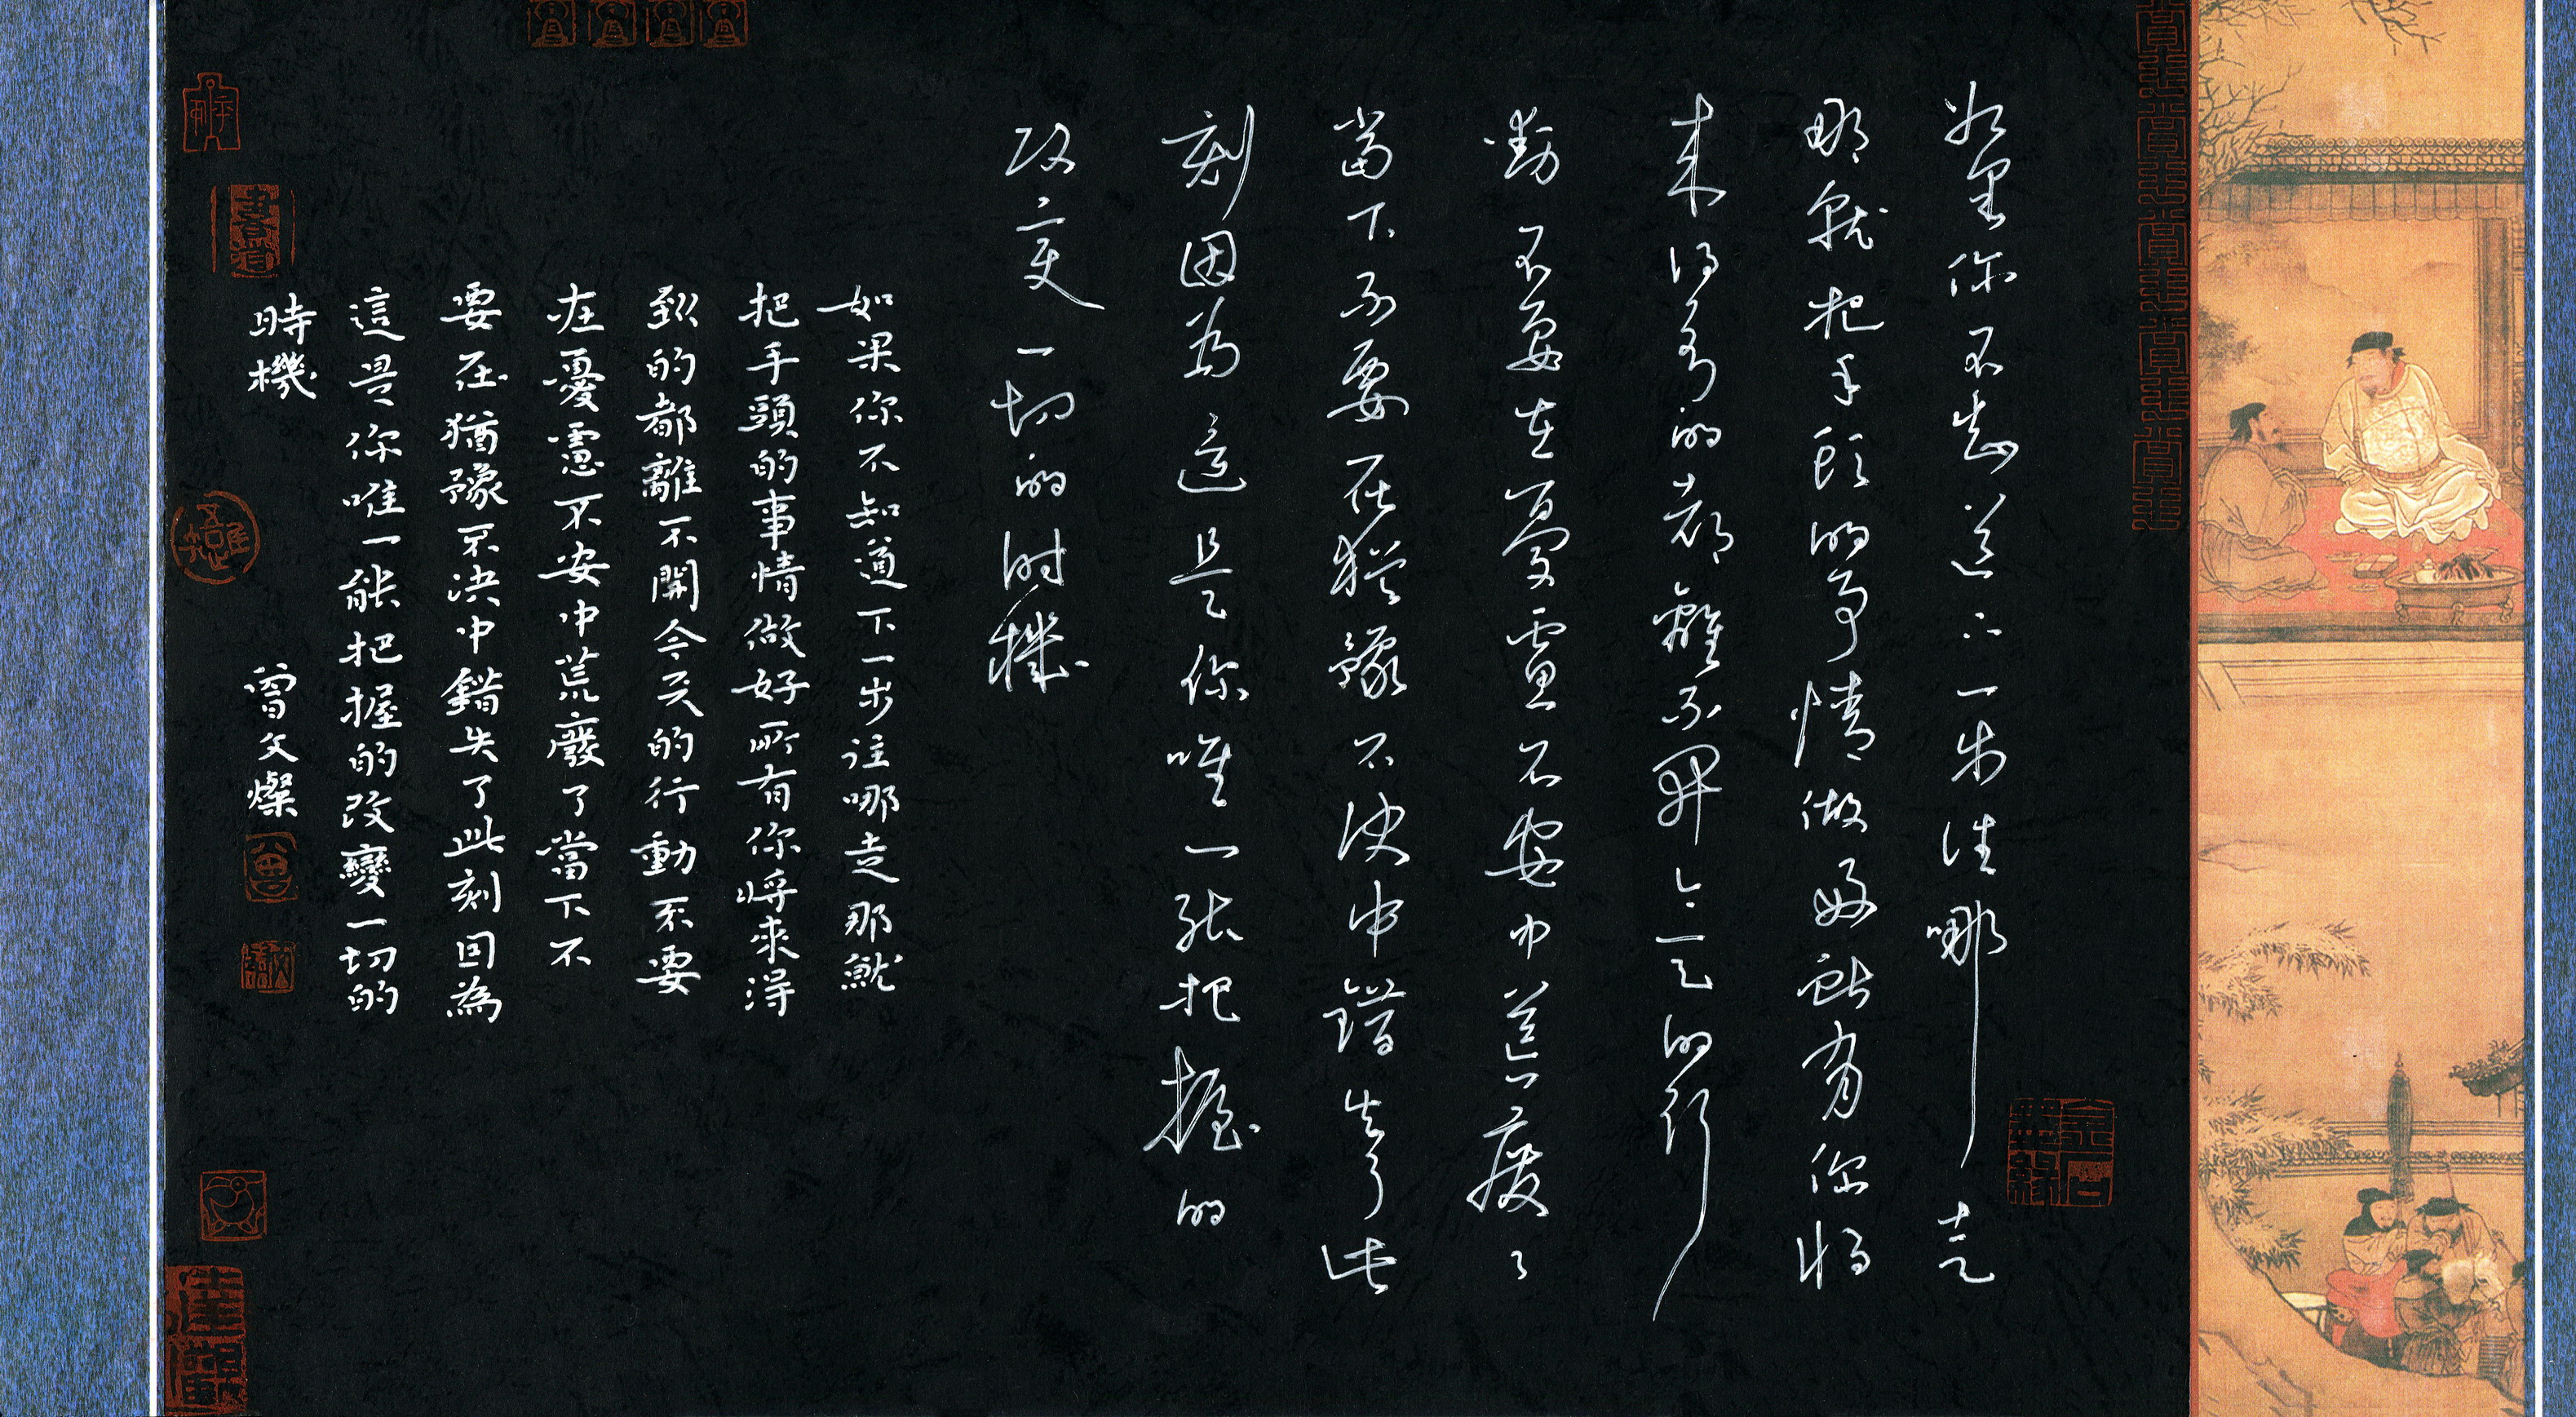 如果你不知道下一步往哪走
那就把手頭的事情做好所有你將
來得到的都離不開今天的行
動不要在憂慮不安中荒廢了
當下不要在猶豫不決中錯失了此
刻因為這是你唯一能把握的
改變一切的時機
如果你不知道下一步往哪走那就
把手頭的事情做好所有你將來得
到的都離不開今天的行動不要
在憂慮不安中荒廢了當下不
要在猶豫不決中錯失了此刻因為
這是你唯一能把握的改變一切的
時機
曾文燦